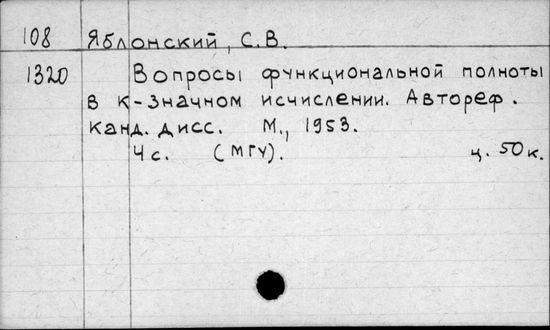 108 Яблонский, С.В.
1320 Вопросы функциональной полноты
в к-значном исчислении. Автореф.
канд. дисс. М., 1953.
4 с. (МГУ). ц. 50 к.